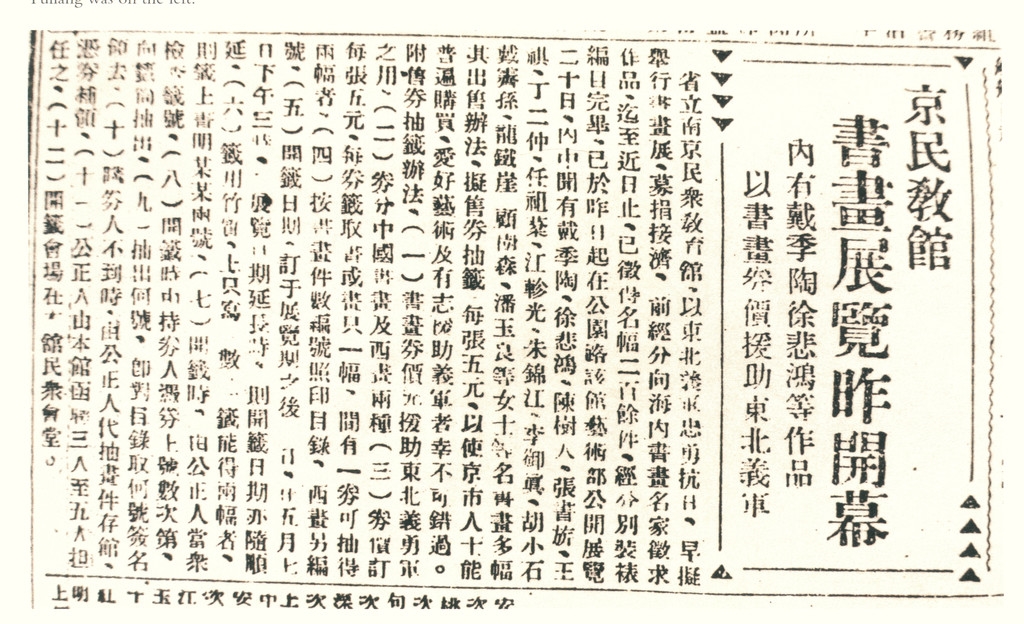 Yuliang was on the left.
京民教館
書畫展覽昨開幕
內右戴季陶徐悲鴻等作品
以書畫券價援助東北義軍
省立南京民衆教育館、以東北義軍忠勇抗日、早擬
舉行書畫展、募捐接濟、前經分向海內書畫名家徵求
作品、迄至近日止、已徵得名幅二百餘件、經分別裝裱
編目完畢、已於昨日起在公園路該館藝術部公開展覽
二十日、內中聞有戴季陶、徐悲鴻、陳樹人、張書旂、王
祺、丁二仲、任祖棻、江軫光、朱錦江、李御真、胡小石
戴齊孫、龍鐵崖 顧樹森、潘玉良等女士等名書畫多幅
其出售辦法、擬售券抽籤、每張五元、以使京市人士能
普遍購買、愛好藝術及有志援助義軍者幸不可錯過。
附售券抽籤辦法、(一)書畫券價元援助東北義勇軍
之用、(二)券分中國書畫及西畫兩種(三)券價訂
每張五元、每券籤取書或畫只一幅、間有一券可抽得
兩幅者、(四)按書畫件數編號照印目錄、西畫另編
號、(五)開籤日期、訂于展覽期之後 五月七
日下午三時、展覽日期延長時、則開籤日期亦隨順
延、(六)籤用竹 上只寫 數 一籤能得兩幅者、
則籤上書明某某兩號、(七)開籤時、由公正人當衆
檢 籤號、(八)開籤時由持券人憑券上號數次第、
向籤筒抽出、(九)抽出何號、卽對目錄取何號簽名
領去、(十)購券人不到時、由公正人代抽畫件存館、
憑券補領、(十一)公正人由本館函聘三人至五人担
任之、(十二)開籤會場在本館民衆會堂。